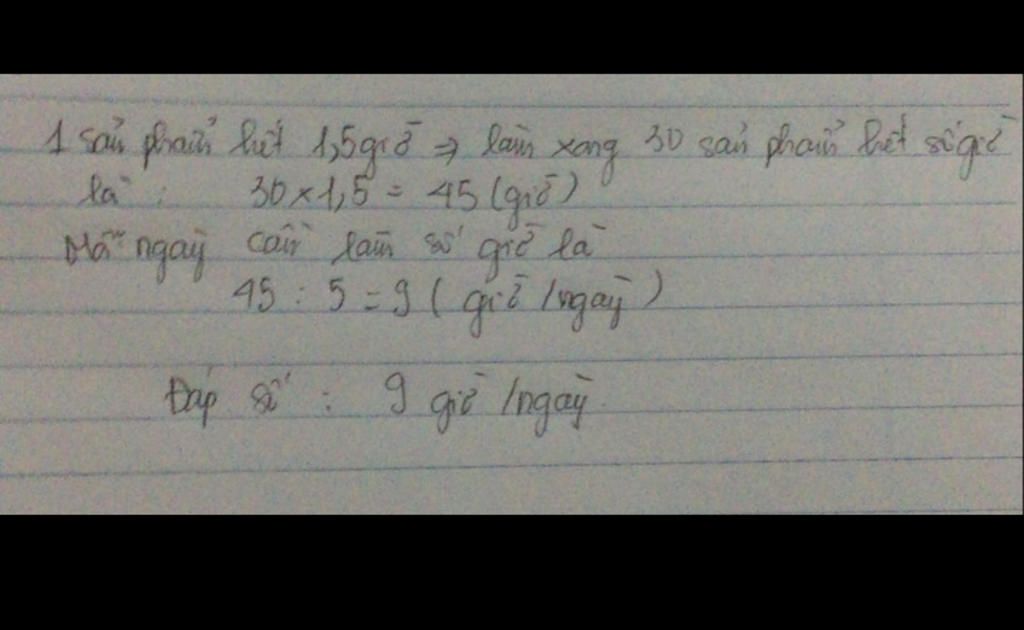 1 sản phẩm hết 1,5giờ => làm xong 30 sản phẩm hết số giờ
là : 30 x 1,5 = 45 (giờ)
Mỗi ngày cần làm số giờ là
45 : 5 = 9 ( giờ /ngày )
Đáp số : 9 giờ /ngày